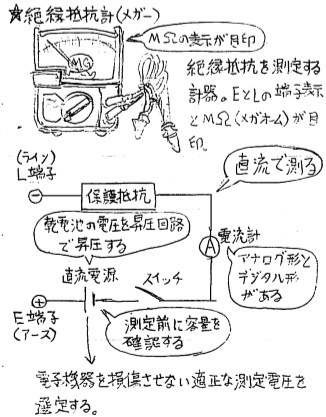 ★絶縁抵抗計(メガー)
MΩの表示が目印
MΩ
絶縁抵抗を測定する
計器。EとLの端子表示
とMΩ(メガオーム)が目
印。
(ライン)
L端子
直流で測る
保護抵抗
乾電池の電圧を昇圧回路
で昇圧する
A
電流計
アナログ形と
デジタル形
がある
直流電源
スイッチ
E端子
(アース)
測定前に容量を
確認する
電子機器を損傷させない適正な測定電圧を
選定する。